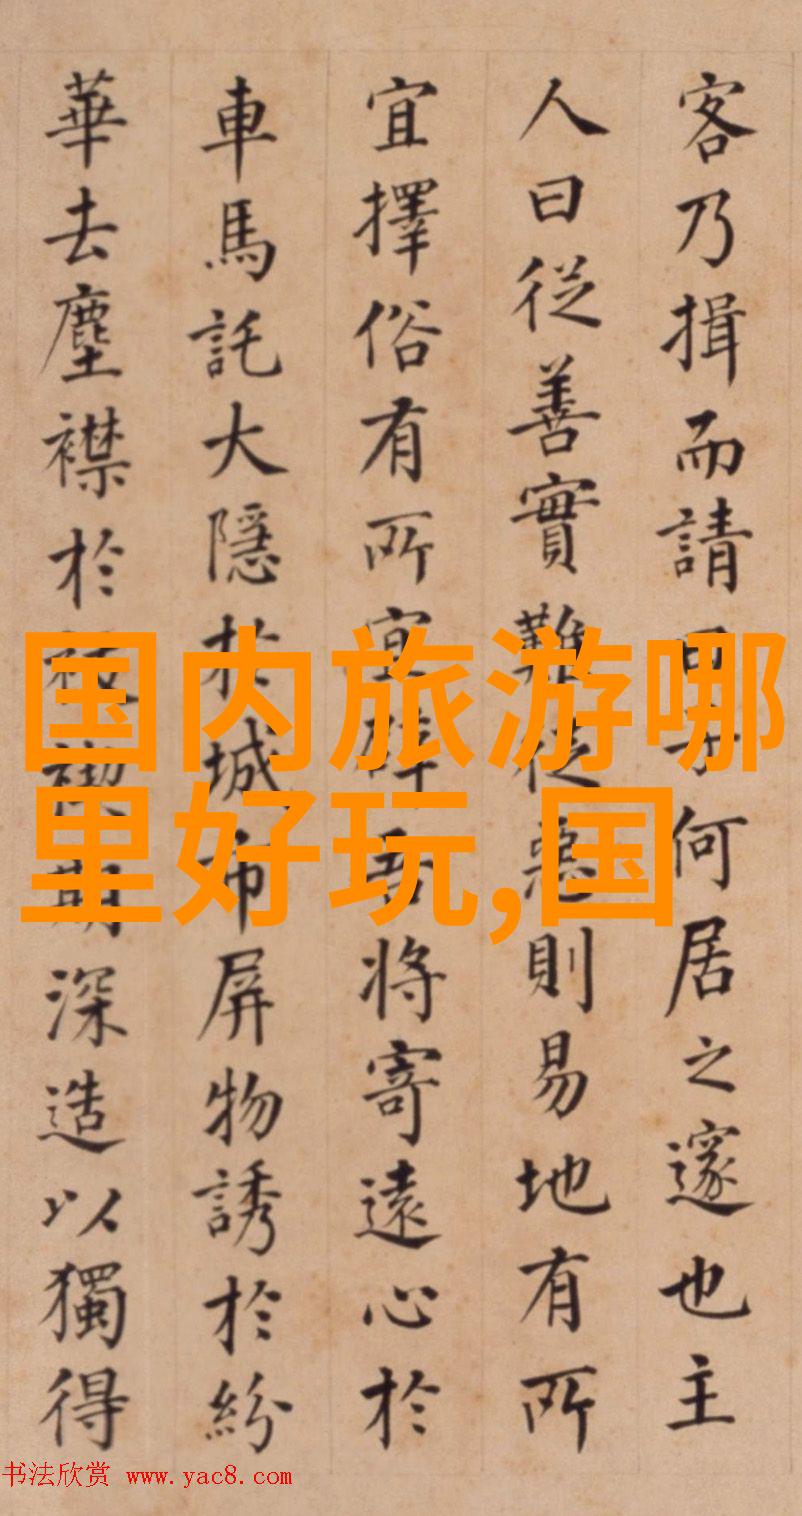 客乃揖而請曰子何居之邃也主
人曰從善實難從惡則易地有所
宜擇俗有所宜吾將寄遠心於
車馬託大隱於城市屏物誘於紛
華去塵襟於禊期深造以獨得
国内旅游哪
里好玩,国
书法欣赏 www.yac8.com